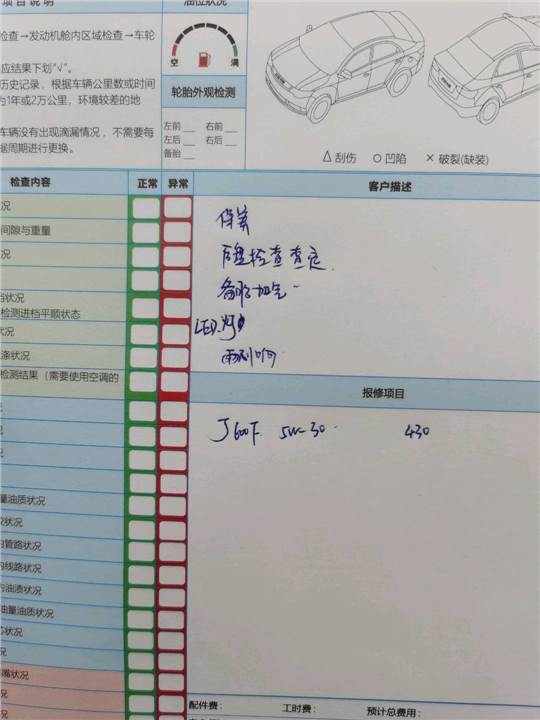 项目说明
油位状况
检查→发动机舱内区域检查→车轮
空
满
应结果下划"√"。
历史记录，根据车辆公里数或时间
为1年或2万公里，环境较差的地
轮胎外观检测
车辆没有出现滴漏情况，不需要每
据周期进行更换。
左前 __ 右前 __
左后 __ 右后 __
备胎 __
△ 刮伤 ○ 凹陷 × 破裂(缺装)
检查内容
正常
异常
客户描述
况
间隙与重量
况
保养
底盘检查 查定
备胎加气
LED灯
雨刮响
检测进档平顺状态
状况
漆状况
检测结果（需要使用空调的
报修项目
J600F 5W-30 430
况
量油质状况
况
管路状况
线路状况
油渍状况
油量油质状况
芯状况
况
嘴状况
况
配件费：
工时费：
预计总费用：